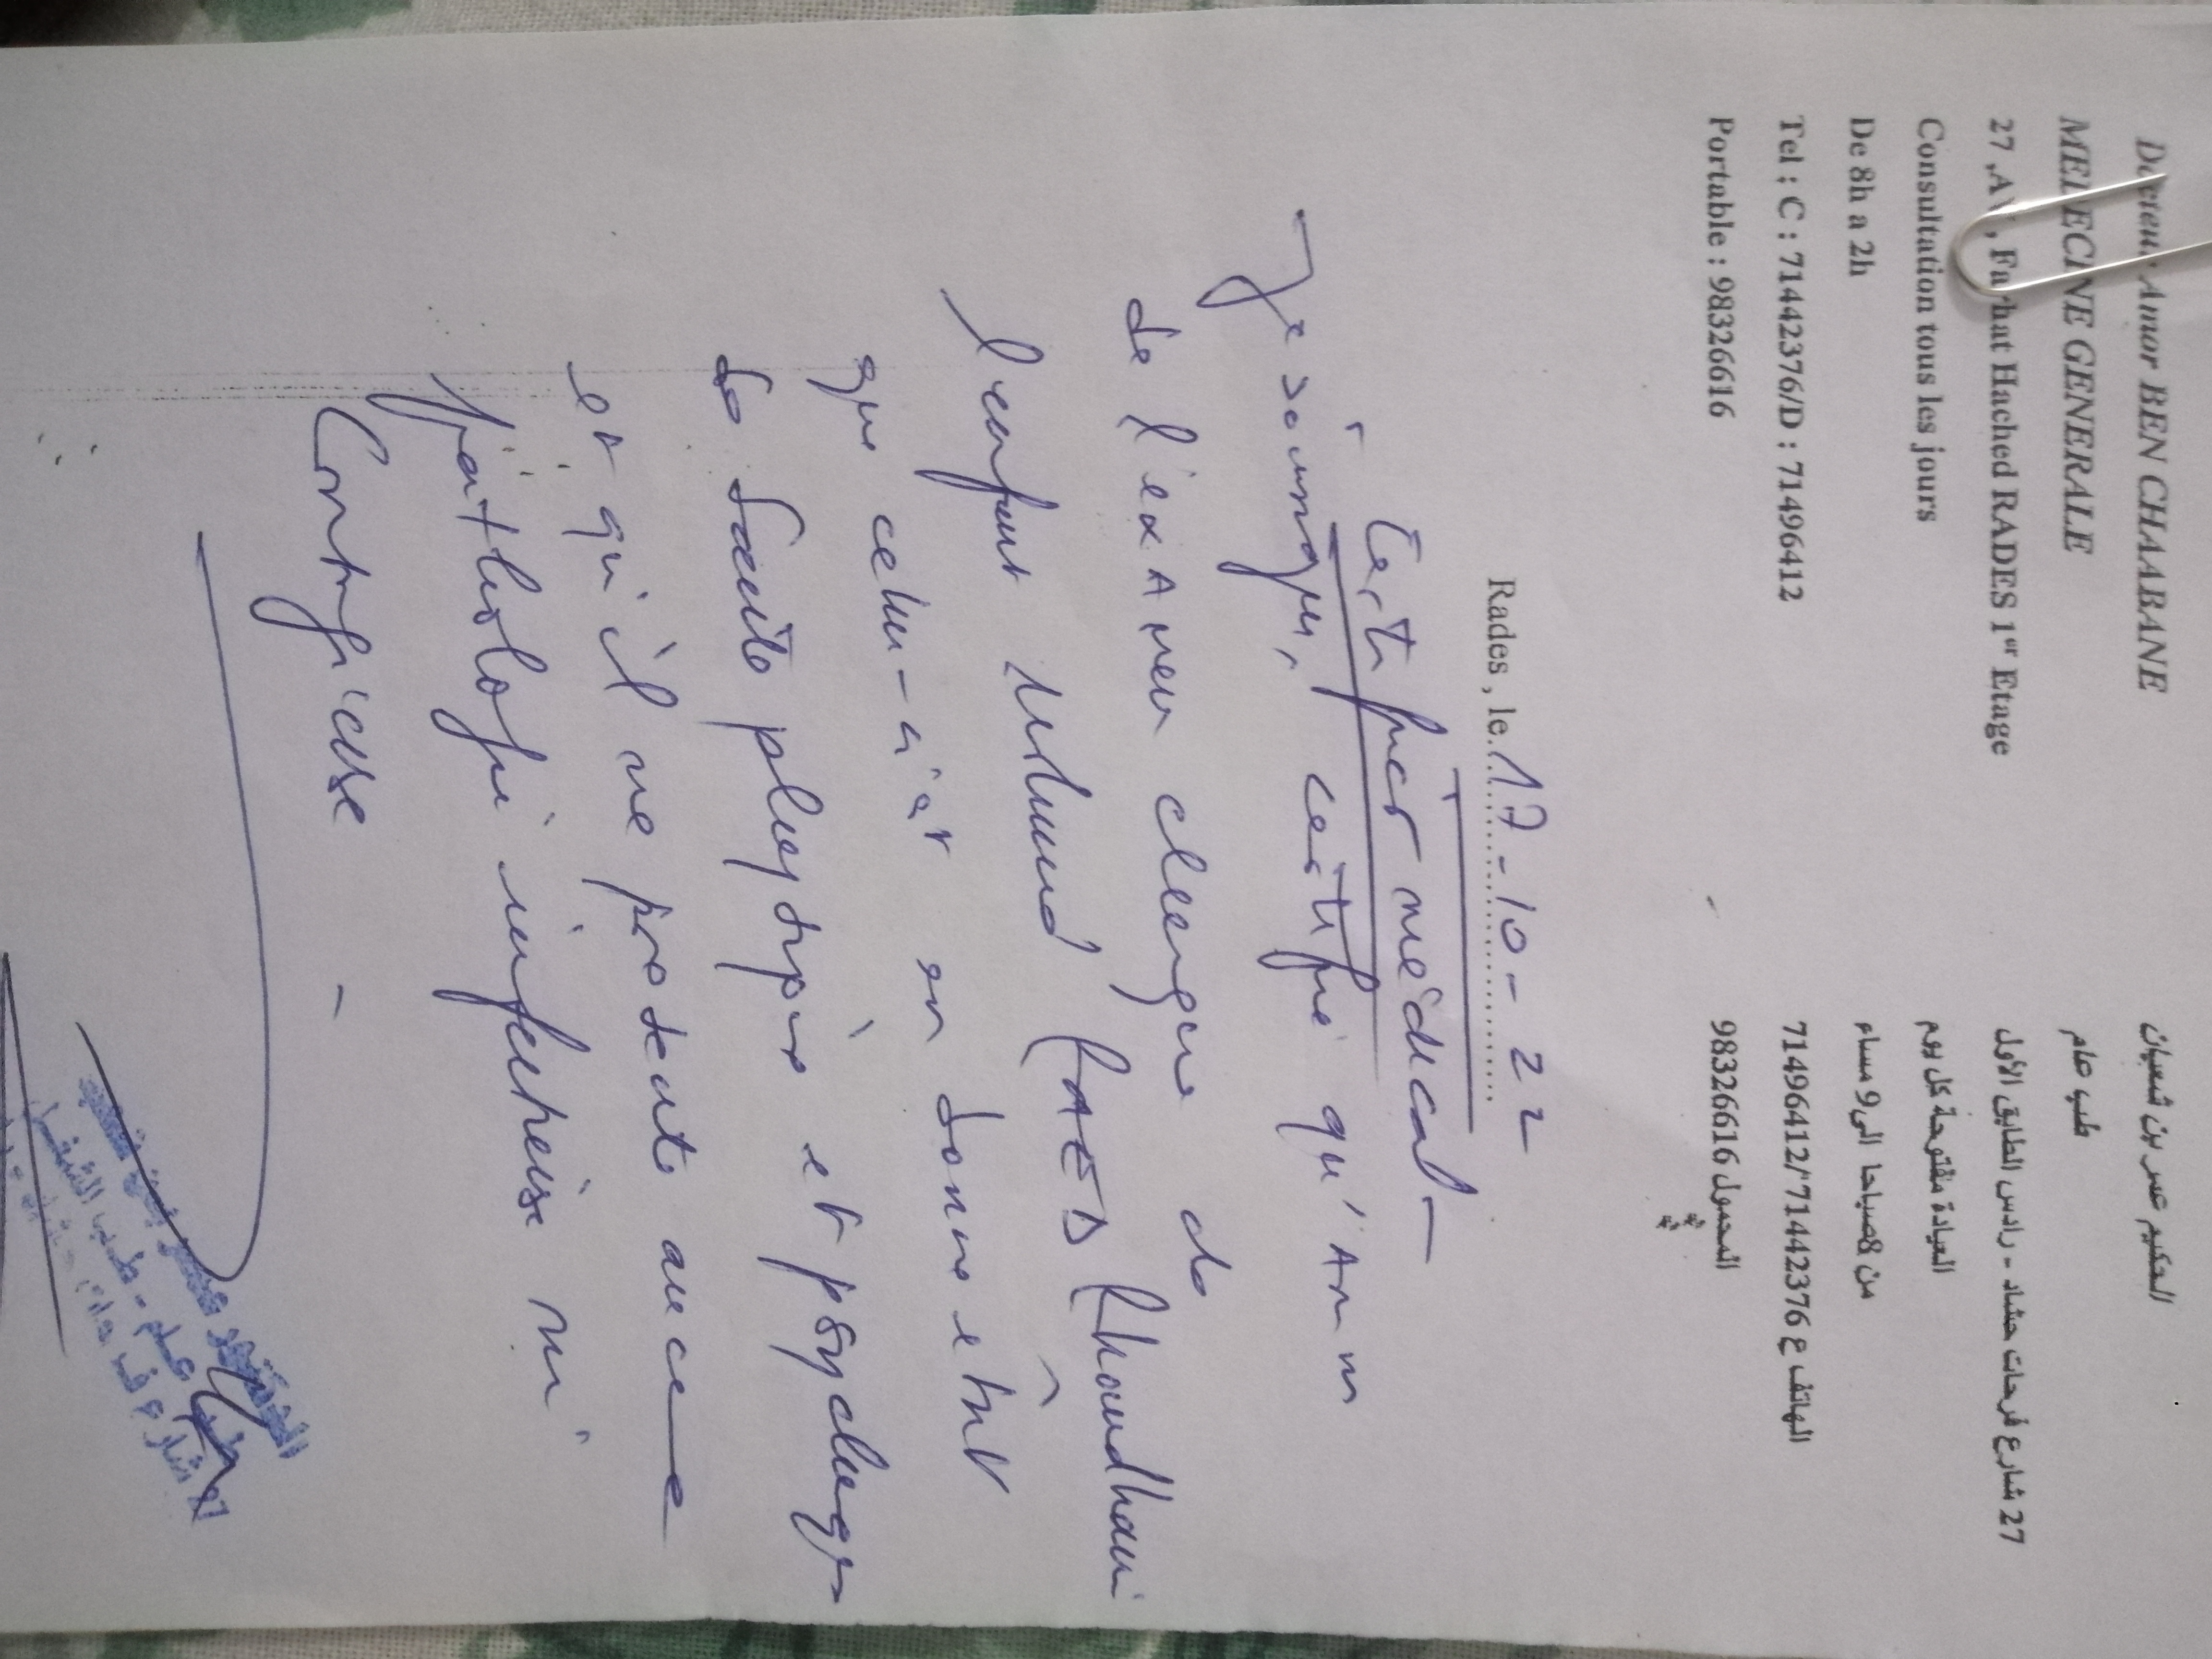 Docteur Amor BEN CHAABANE
MEDECINE GENERALE
27 ,AV , Farhat Hached RADES 1er Etage
Consultation tous les jours
De 8h a 2h
Tel : C : 71442376/D : 71496412
Portable : 98326616
الحكيم عمر بن شعبان
طب عام
27 شارع فرحات حشاد - رادس الطابق الأول
العيادة مفتوحة كل يوم
من 8صباحا الى 9 مساء
الهاتف ع 71442376/71496412
المحمول 98326616
Rades , le 17-10-22
Certificat médical
Je soussigné, certifie qu'au
de l'examen clinique de
l'enfant RAED Khoundhami
que celui-ci est en bonne état
de santé physique et psychique
et qu'il ne présente aucune
pathologie infectieuse ni
Contagieuse -